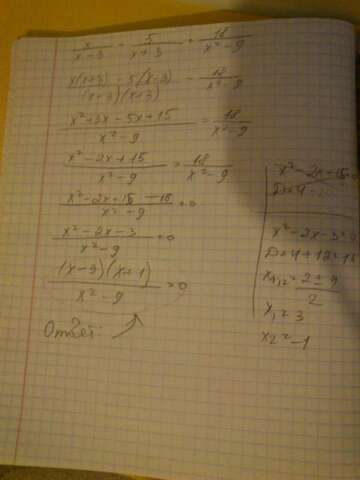 x/(x-3) - 5/(x+3) = 18/(x²-9)
(x(x+3) - 5(x-3))/((x-3)(x+3)) = 18/(x²-9)
(x²+3x-5x+15)/(x²-9) = 18/(x²-9)
(x²-2x+15)/(x²-9) = 18/(x²-9)
(x²-2x+15-18)/(x²-9) = 0
(x²-2x-3)/(x²-9) = 0
((x-3)(x+1))/(x²-9) = 0
Ответ:
x²-2x+15=
D=4-
x²-2x-3=0
D=4+12=16
x₁,₂=(2±4)/2
x₁=3
x₂=-1